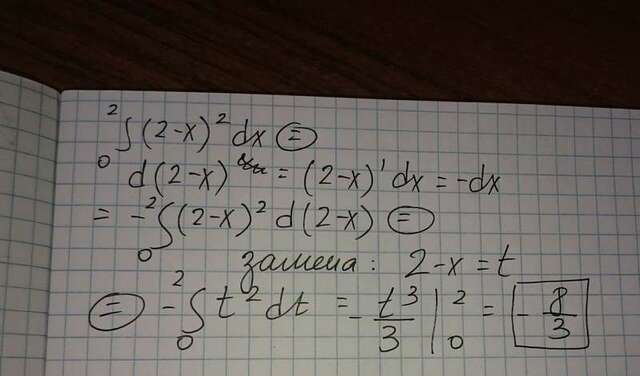 ₀²∫(2-x)²dx ⊜
d(2-x) = (2-x)'dx = -dx
= -₀²∫(2-x)²d(2-x) ⊜
замена: 2-x=t
⊜ -₀²∫t²dt = -t³/3 |₀² = -8/3